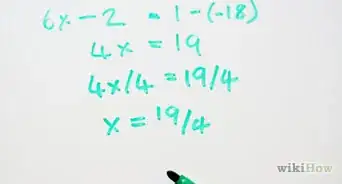 6x - 2 = 1 - (-18)
4x = 19
4x/4 = 19/4
x = 19/4
wikiHow